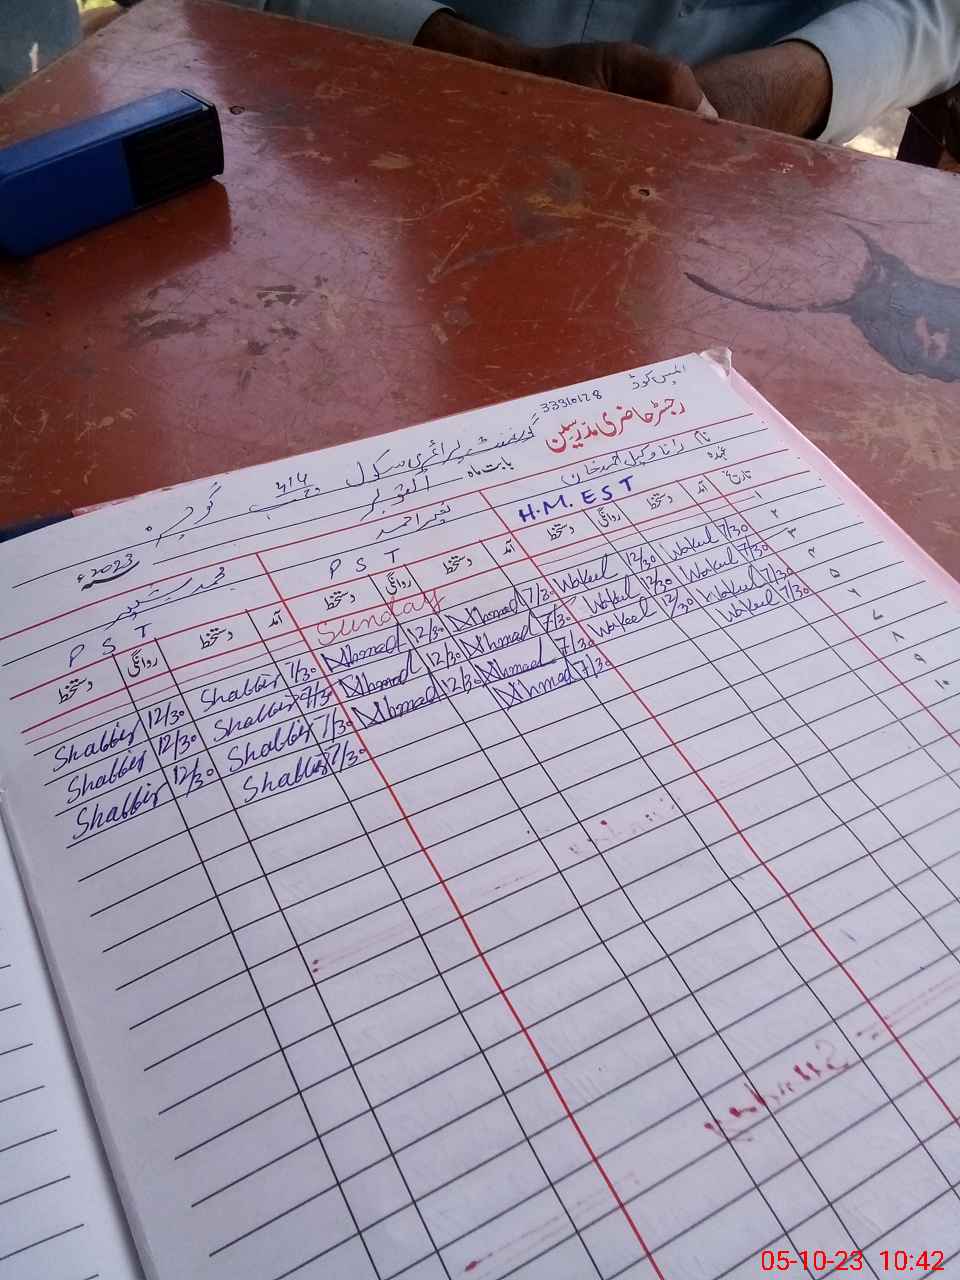 ایمس کوڈ 33310128
رجسٹر حاضری مدرسین گورنمنٹ پرائمری سکول 414 ج ب گوجرہ
بابت ماہ اکتوبر 2023ء
نام رانا وکیل احمد خان نصیر احمد محمد شبیر
عہدہ H.M. EST PST PST
تاریخ آمد دستخط روانگی دستخط آمد دستخط روانگی دستخط آمد دستخط روانگی دستخط
۱ Sunday
۲ 7/30 Wakeel 12/30 Wakeel 7/30 Ahmad 12/30 Ahmad 7/30 Shabbir 12/30 Shabbir
۳ 7/30 Wakeel 12/30 Wakeel 7/30 Ahmad 12/30 Ahmad 7/30 Shabbir 12/30 Shabbir
۴ 7/30 Wakeel 12/30 Wakeel 7/30 Ahmad 12/30 Ahmad 7/30 Shabbir 12/30 Shabbir
۵ 7/30 Wakeel 7/30 Ahmad 7/30 Shabbir
۶
۷
۸
۹
۱۰
05-10-23 10:42